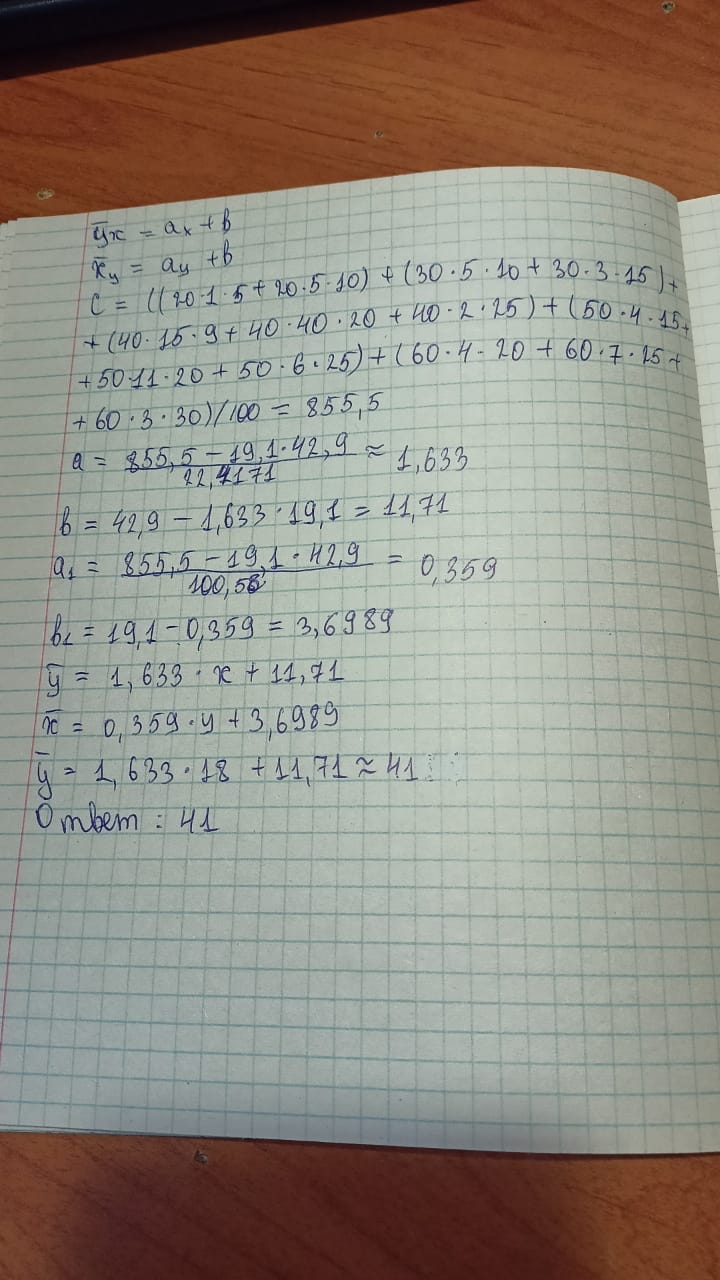 ȳx = ax + b
x̄y = ay + b
C = ((20·1·5 + 20·5·10) + (30·5·10 + 30·3·15) +
+ (40·15·9 + 40·40·20 + 40·2·25) + (50·4·15 +
+ 50·11·20 + 50·6·25) + (60·4·20 + 60·7·25 +
+ 60·3·30)/100 = 855,5
a = (855,5 − 19,1·42,9)/22,4171 ≈ 1,633
b = 42,9 − 1,633·19,1 = 11,71
a1 = (855,5 − 19,1·42,9)/100,58 = 0,359
b1 = 19,1 − 0,359 = 3,6989
ȳ = 1,633·x + 11,71
x̄ = 0,359·y + 3,6989
ȳ = 1,633·18 + 11,71 ≈ 41
Ответ: 41